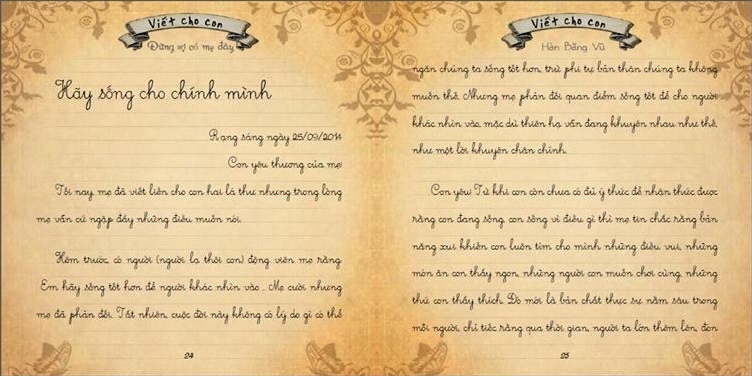 Viết cho con
Đừng sợ có mẹ đây
Hãy sống cho chính mình
Rạng sáng ngày 25/09/2014
Con yêu thương của mẹ!
Tối nay, mẹ đã viết liền cho con hai lá thư nhưng trong lòng
mẹ vẫn cứ ngập đầy những điều muốn nói.
Hôm trước, có người (người lạ thôi con) động viên mẹ rằng:
Em hãy sống tốt hơn để người khác nhìn vào... Mẹ cười nhưng
mẹ đã phản đối. Tất nhiên, cuộc đời này không có lý do gì có thể
24
Viết cho con
Hàn Băng Vũ
ngăn chúng ta sống tốt hơn, trừ phi tự bản thân chúng ta không
muốn thế. Nhưng mẹ phản đối quan điểm sống tốt để cho người
khác nhìn vào, mặc dù thiên hạ vẫn đang khuyên nhau như thế,
như một lời khuyên chân chính.
Con yêu! Từ khi con còn chưa có đủ ý thức để nhận thức được
rằng con đang sống, con sống vì điều gì thì mẹ tin chắc rằng bản
năng xui khiến con luôn tìm cho mình những điều vui, những
món ăn con thấy ngon, những người con muốn chơi cùng, những
thứ con thấy thích. Đó mới là bản chất thực sự nằm sâu trong
mỗi người, chỉ tiếc rằng qua thời gian, người ta lớn thêm lên, đón
25